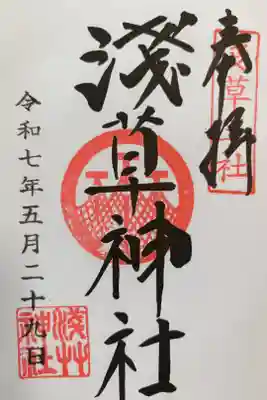 奉拝
浅草社
淺草神社
令和七年五月二十九日
淺草神社